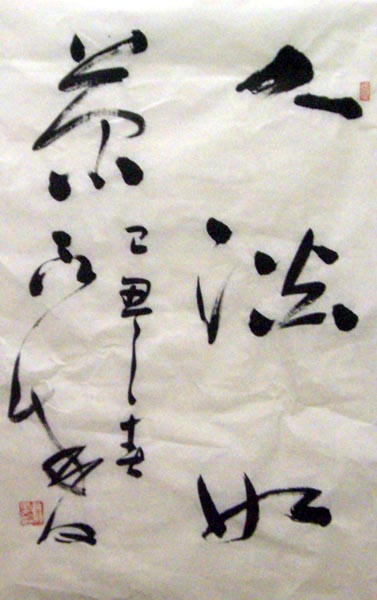 人淡如
茶
己丑之春